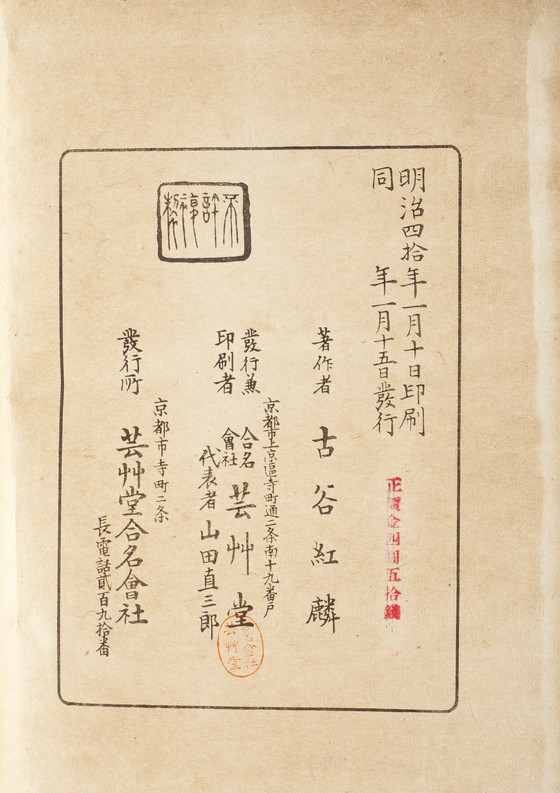 明治四拾年一月十日印刷
同年一月十五日發行
正價金四圓五拾錢
不許復栁
著作者 古谷紅麟
京都市上京區寺町通二条南十九番戸
發行兼
印刷者
合名
會社
芸艸堂
代表者 山田直三郎
京都市寺町二条
發行所 芸艸堂合名會社
長電話貳百九拾番